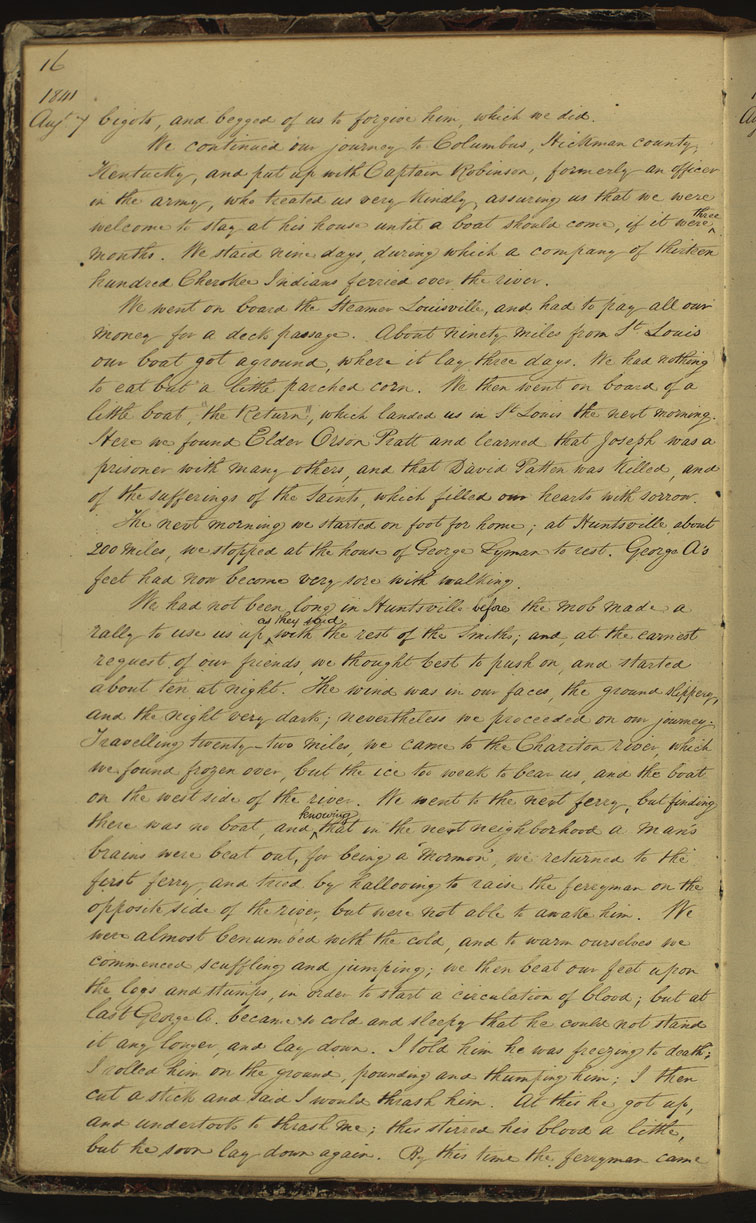 16
1841
Aug 7 bigots, and begged of us to forgive him, which we did.
We continued our journey to Columbus, Hickman county,
Kentucky, and put up with Captain Robinson, formerly an officer
in the army, who treated us very kindly, assuring us that we were
welcome to stay at his house until a boat should come, if it were three
months. We staid nine days, during which a company of thirteen
hundred Cherokee Indians ferried over the river.
We went on board the Steamer Louisville, and had to pay all our
money for a deck passage. About ninety miles from St Louis
our boat got aground, where it lay three days. We had nothing
to eat but a little parched corn. We then went on board of a
little boat, "the Return", which landed us in St Louis the next morning.
Here we found Elder Orson Pratt and learned that Joseph was a
prisoner with many others, and that David Patten was killed, and
of the sufferings of the Saints, which filled our hearts with sorrow.
The next morning we started on foot for home; at Huntsville, about
200 miles, we stopped at the house of George Lyman to rest. George A's
feet had now become very sore with walking.
We had not been long in Huntsville before the mob made a
rally to use us up, as they said, with the rest of the Smiths; and, at the earnest
request of our friends, we thought best to push on, and started
about ten at night. The wind was in our faces, the ground slippery,
and the night very dark; nevertheless we proceeded on our journey.
Travelling twenty-two miles, we came to the Chariton river, which
we found frozen over, but the ice too weak to bear us, and the boat
on the west side of the river. We went to the next ferry, but finding
there was no boat, and knowing that in the next neighborhood a man's
brains were beat out, for being a "Mormon", we returned to the
first ferry, and tried by hallooing to raise the ferryman on the
opposite side of the river, but were not able to awake him. We
were almost benumbed with the cold, and to warm ourselves we
commenced scuffling and jumping; we then beat our feet upon
the logs and stumps, in order to start a circulation of blood; but at
last George A. became so cold and sleepy that he could not stand
it any longer, and lay down. I told him he was freezing to death;
I rolled him on the ground, pounding and thumping him; I then
cut a stick and said I would thrash him. At this he got up,
and undertook to thrash me; this stirred his blood a little,
but he soon lay down again. By this time the ferryman came